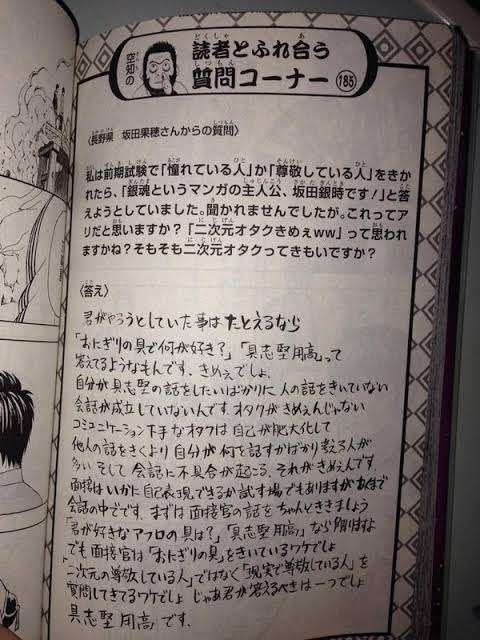 空知の
読者とふれ合う
質問コーナー 185
〈長野県 坂田果穂さんからの質問〉
私は前期試験で「憧れている人」か「尊敬している人」をきか
れたら、「銀魂というマンガの主人公、坂田銀時です!」と答
えようとしていました。聞かれませんでしたが。これってア
リだと思いますか?「二次元オタクきめぇww」って思われ
ますかね?そもそも二次元オタクってきもいですか?
〈答え〉
君がやろうとしていた事はたとえるなら
「おにぎりの具で何が好き?」「具志堅用高」って
答えてるようなもんです、きめぇでしょ。
自分が具志堅の話をしたいばかりに人の話をきいていない
会話が成立していないんです オタクがきめぇんじゃない
コミュニケーション下手なオタクは自己が肥大化して
他人の話をきくより自分が何を話すかばかり考える人が
多い そして会話に不具合が起こる、それがきめぇんです
面接はいかに自己表現できるか試す場でもありますがあくまで
会話の中でです、まずは面接官の話をちゃんとききましょう
「君が好きなアフロの具は?」「具志堅用高」なら解りますよ
でも面接官は「おにぎりの具」をきいているワケでしょ
「二次元の尊敬している人」ではなく「現実で尊敬している人」を
質問してきてるワケでしょ じゃあ君が答えるべきは一つでしょ
具志堅用高です、